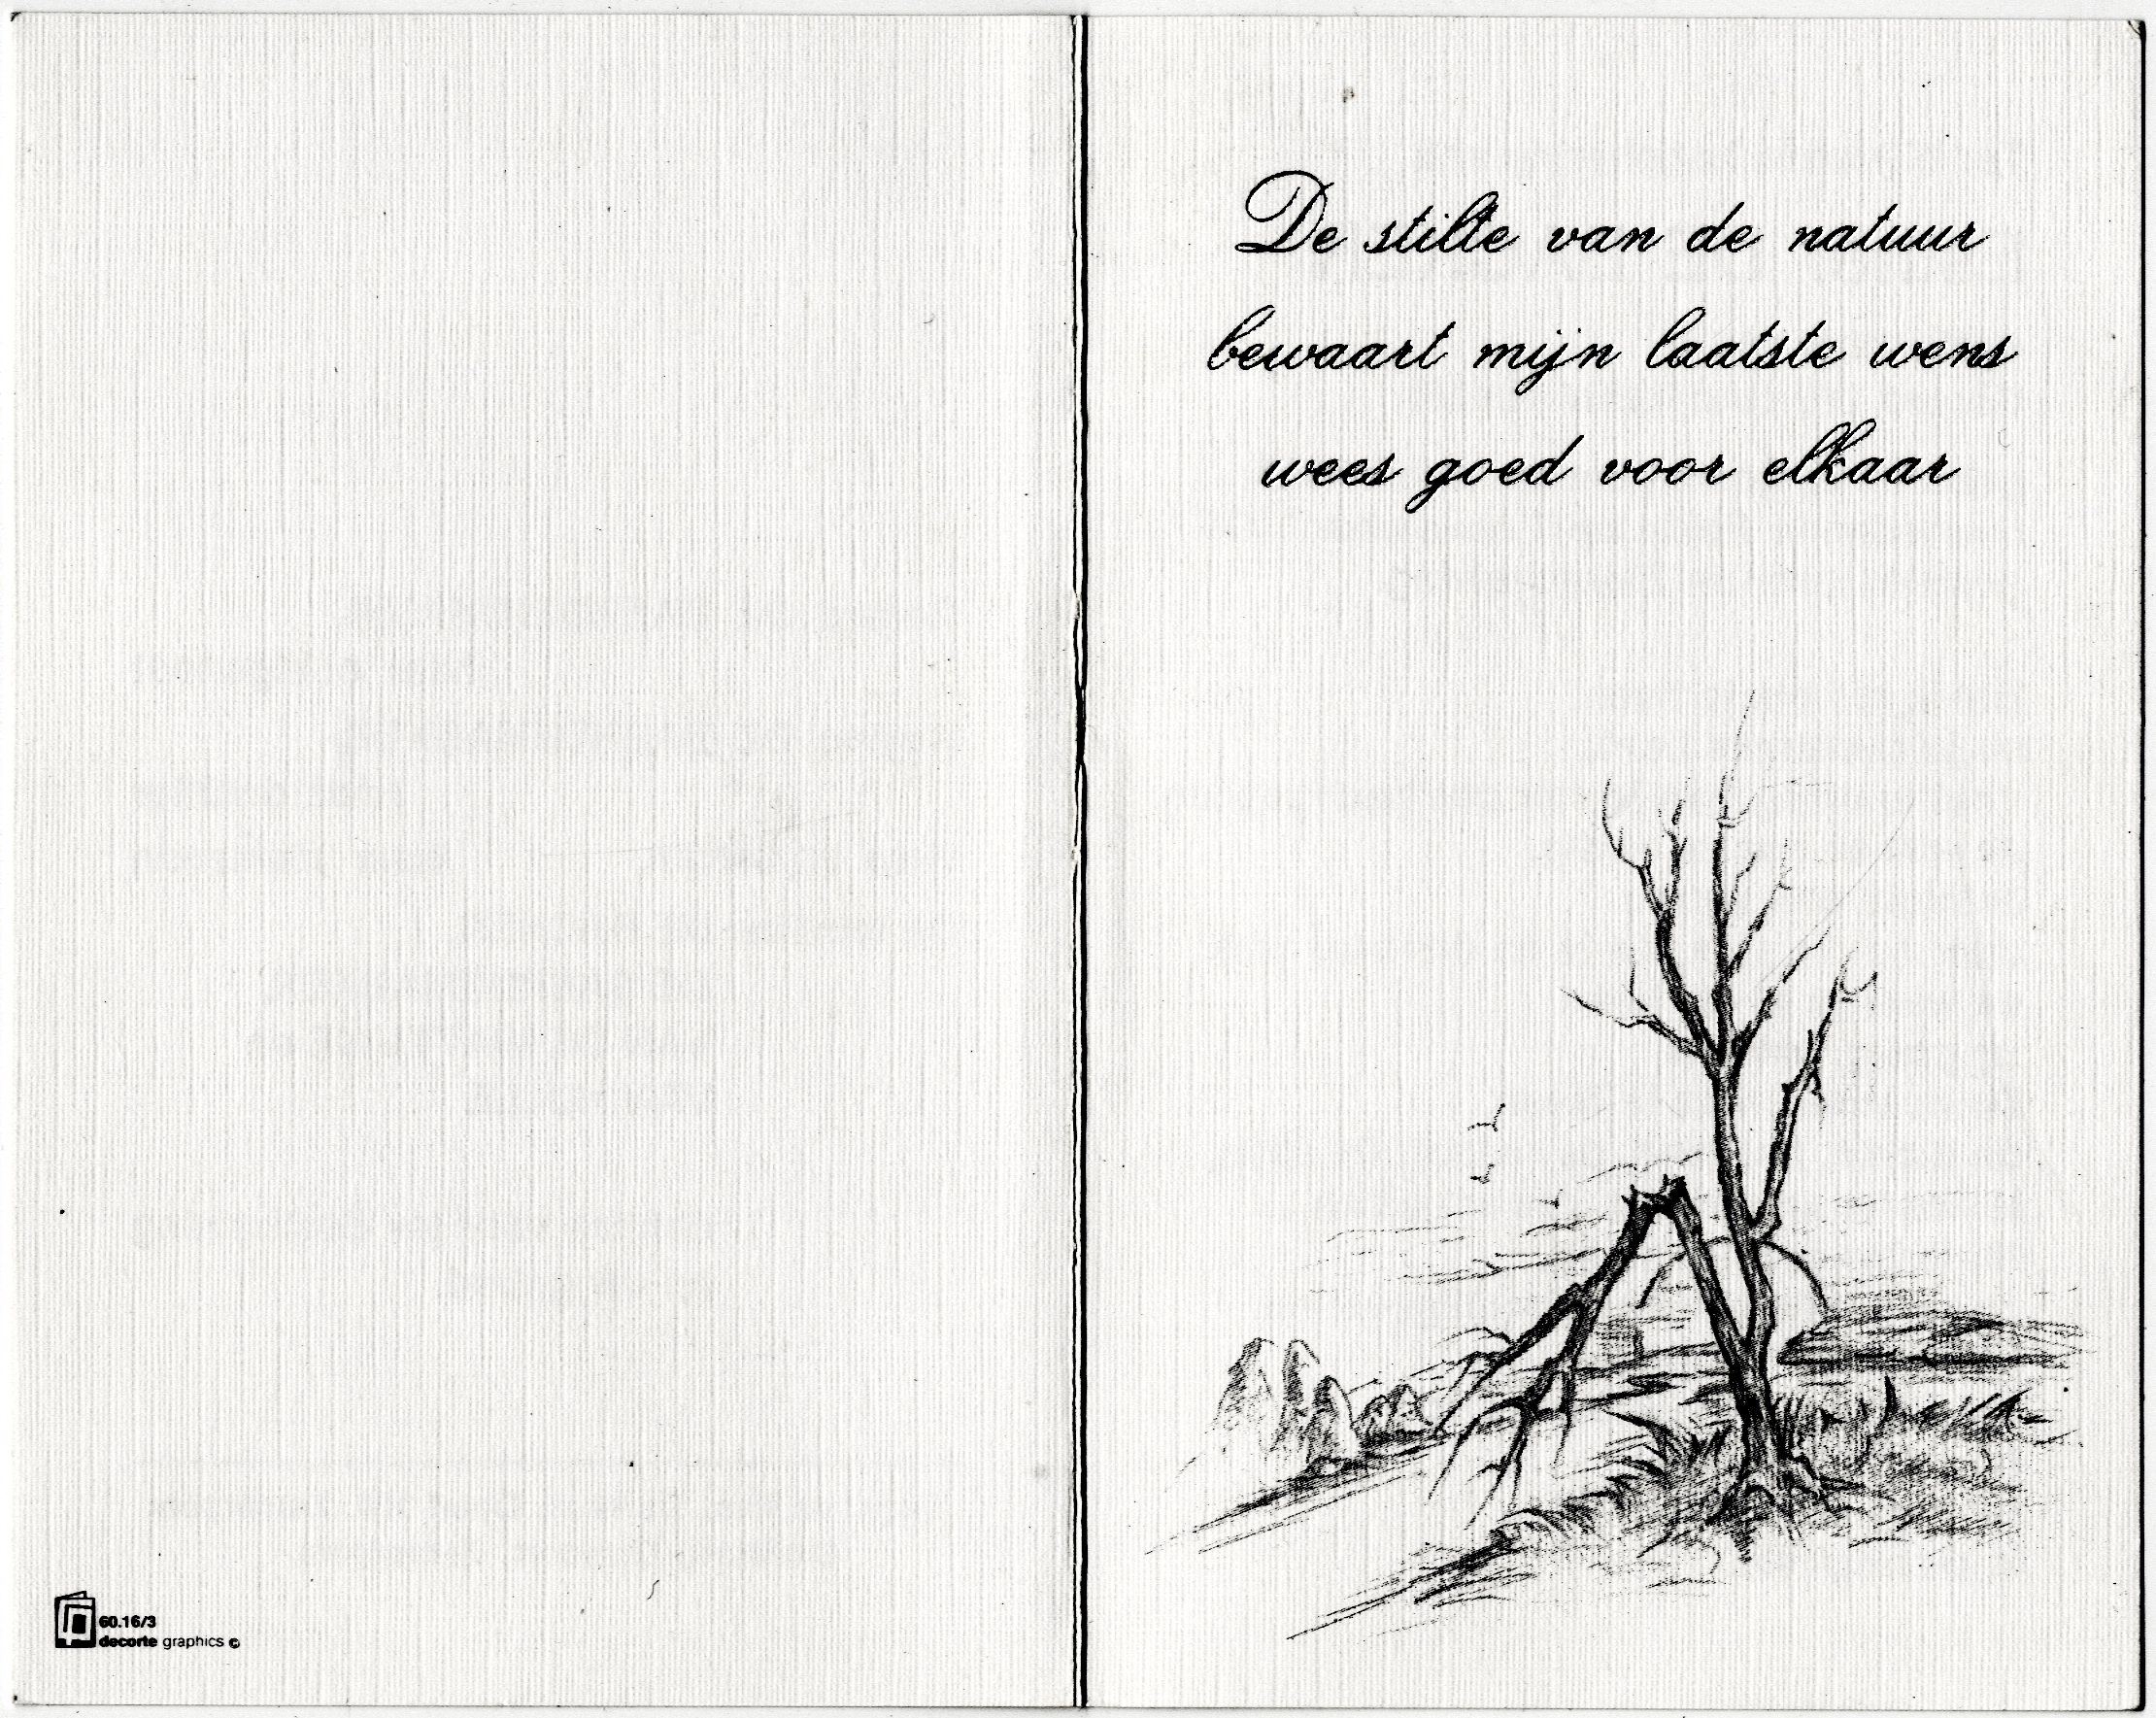 De stilte van de natuur
bewaart mijn laatste wens
wees goed voor elkaar
60.16/3
decorte graphics ©